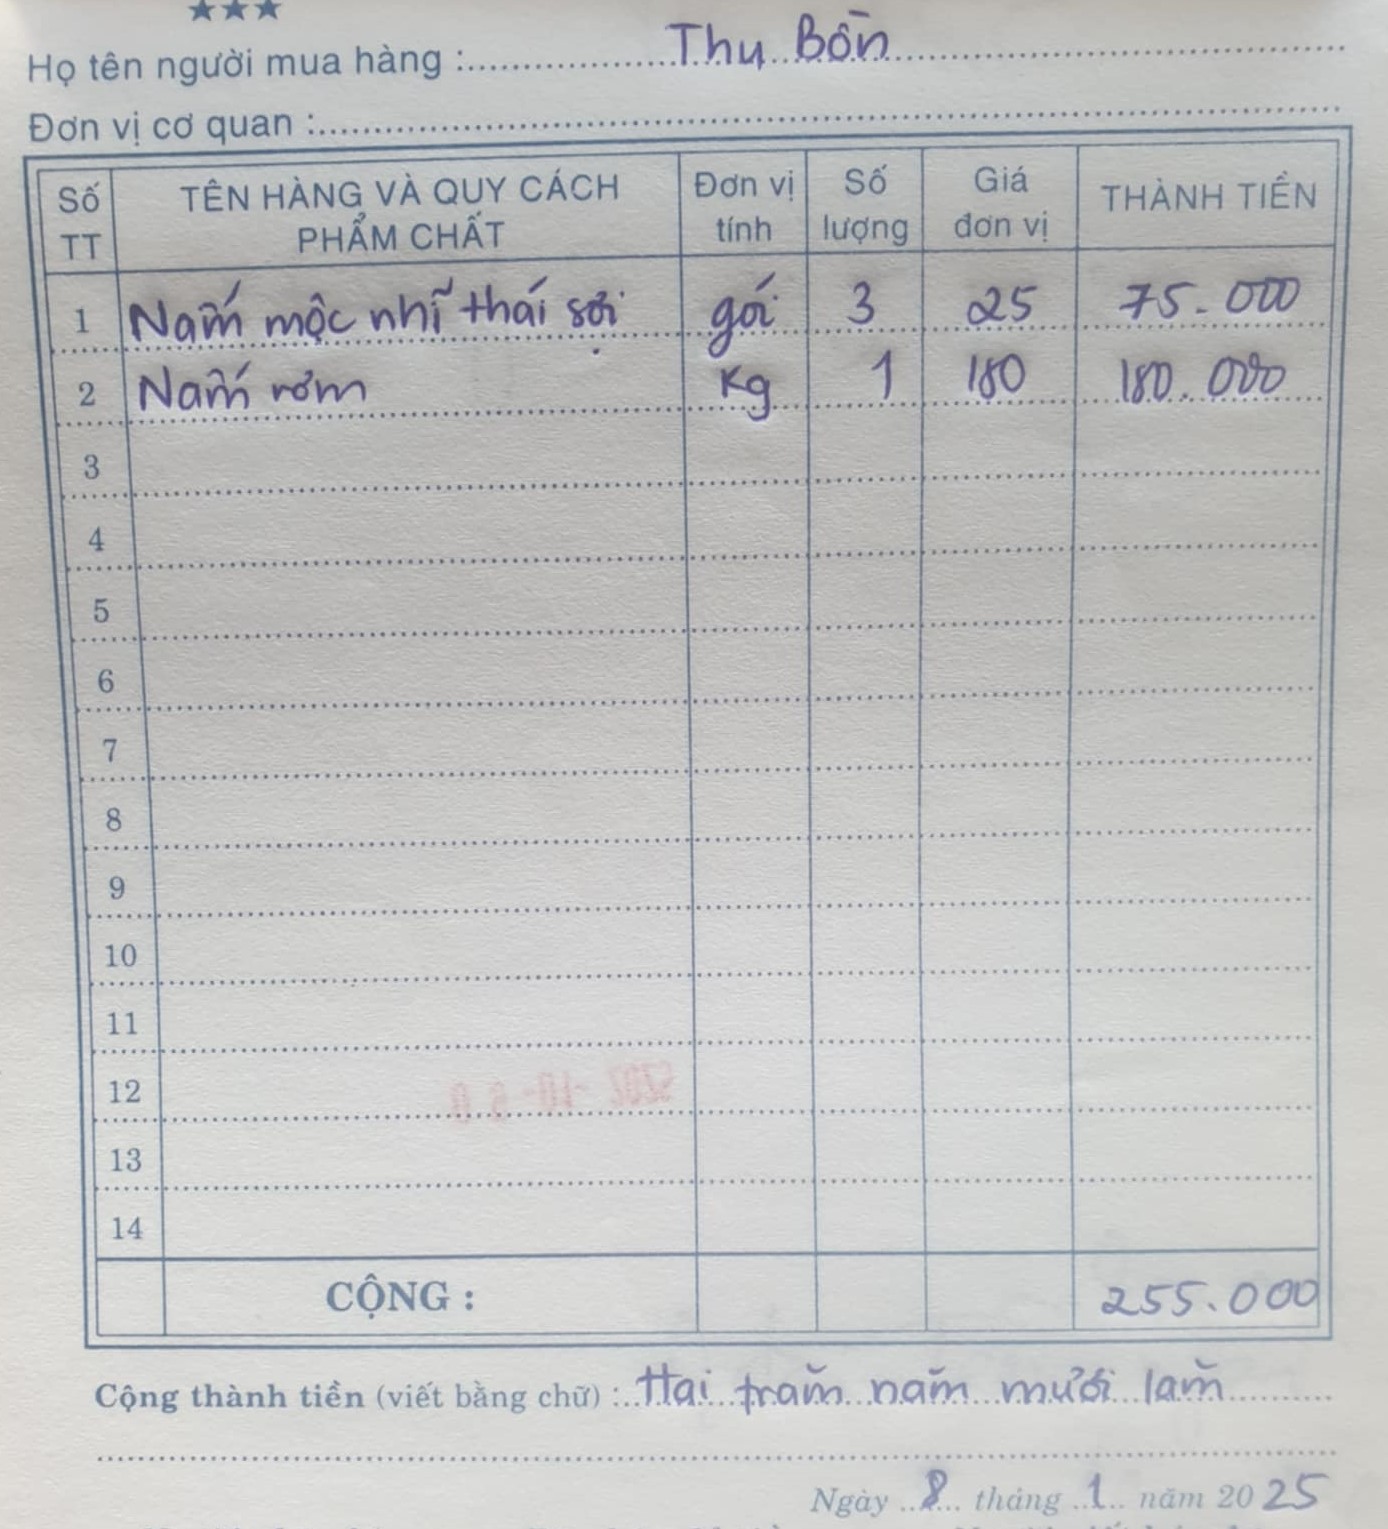 ★★★
Họ tên người mua hàng : Thu Bồn
Đơn vị cơ quan :
Số TT TÊN HÀNG VÀ QUY CÁCH PHẨM CHẤT Đơn vị tính Số lượng Giá đơn vị THÀNH TIỀN
1 Nấm mộc nhĩ thái sợi gói 3 25 75.000
2 Nấm rơm Kg 1 180 180.000
3
4
5
6
7
8
9
10
11
12
13
14
CỘNG : 255.000
Cộng thành tiền (viết bằng chữ) : Hai trăm năm mươi lăm
Ngày 8 tháng 1 năm 2025